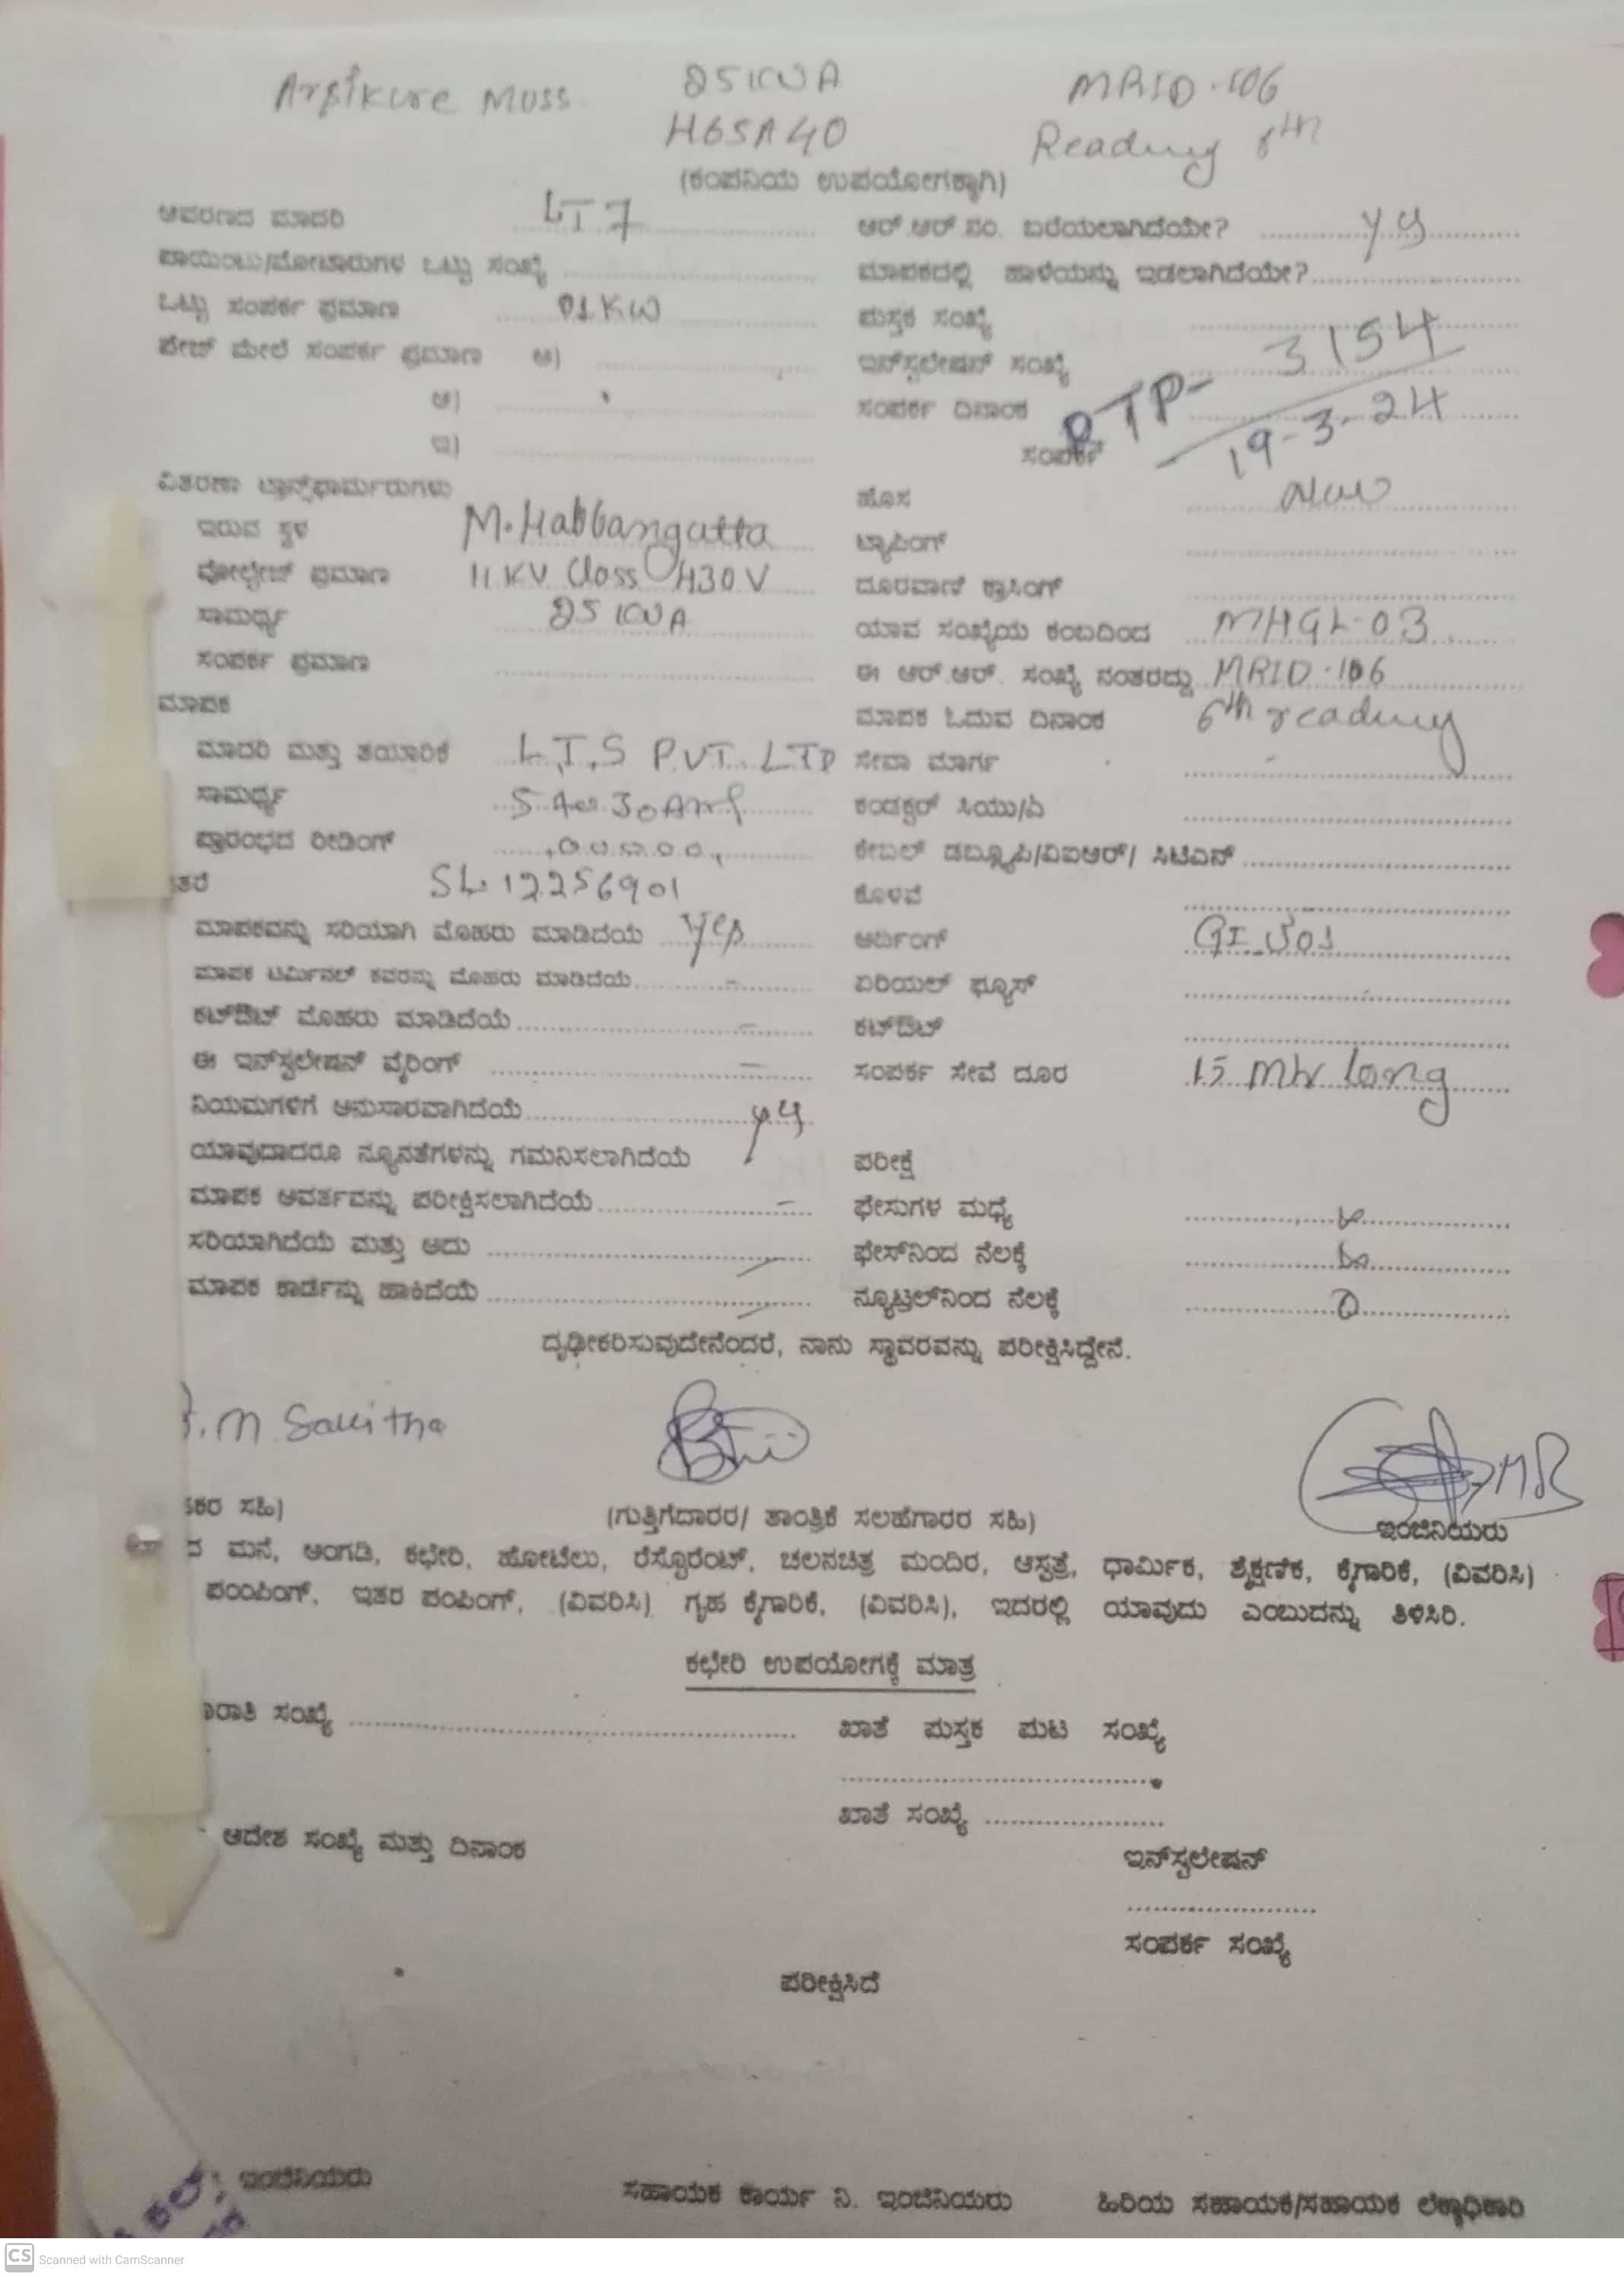 Arsikere MUSS 25 KVA MRID-106
H65A40 Reading 6th
(ಕಂಪನಿಯ ಉಪಯೋಗಕ್ಕಾಗಿ)
ಆವರಣದ ಮಾದರಿ LT 7 ಆರ್.ಆರ್.ನಂ. ಬರೆಯಲಾಗಿದೆಯೇ? yes
ಪಾಯಿಂಟು/ಮೋಟಾರುಗಳ ಒಟ್ಟು ಸಂಖ್ಯೆ ಮಾಪಕದಲ್ಲಿ ಹಾಳೆಯನ್ನು ಇಡಲಾಗಿದೆಯೇ?
ಒಟ್ಟು ಸಂಪರ್ಕ ಪ್ರಮಾಣ 01 KW ಪುಸ್ತಕ ಸಂಖ್ಯೆ
ಪೇಜ್ ಮೇಲೆ ಸಂಪರ್ಕ ಪ್ರಮಾಣ ಅ) ಇನ್‌ಸ್ಟಲೇಷನ್ ಸಂಖ್ಯೆ 3154
ಆ) ಸಂಪರ್ಕ ದಿನಾಂಕ PTP- 19-3-24
ಇ) ಸಂಪರ್ಕ
ವಿತರಣಾ ಟ್ರಾನ್ಸ್‌ಫಾರ್ಮರುಗಳು ಹೊಸ New
ಇರುವ ಸ್ಥಳ M. Habbangatta ಟ್ಯಾಪಿಂಗ್
ವೋಲ್ಟೇಜ್ ಪ್ರಮಾಣ 11 KV Class 430 V ದೂರವಾಣಿ ಕ್ರಾಸಿಂಗ್
ಸಾಮರ್ಥ್ಯ 25 KVA ಯಾವ ಸಂಖ್ಯೆಯ ಕಂಬದಿಂದ MHGL-03
ಸಂಪರ್ಕ ಪ್ರಮಾಣ ಈ ಆರ್.ಆರ್. ಸಂಖ್ಯೆ ನಂತರದ್ದು MRID-106
ಮಾಪಕ ಮಾಪಕ ಓದುವ ದಿನಾಂಕ 6th reading
ಮಾದರಿ ಮತ್ತು ತಯಾರಿಕೆ L.T.S PVT. LTD ಸೇವಾ ಮಾರ್ಗ
ಸಾಮರ್ಥ್ಯ 5 30 Amp ಕಂಡಕ್ಟರ್ ಸಿಯು/ಎ
ಪ್ರಾರಂಭದ ರೀಡಿಂಗ್ 00000 ಕೇಬಲ್ ಡಬ್ಲ್ಯೂಪಿ/ವಿಐಆರ್/ ಸಿಟಿಎಸ್
ತರೆ SL 12256901 ಕೊಳವೆ
ಮಾಪಕವನ್ನು ಸರಿಯಾಗಿ ಮೊಹರು ಮಾಡಿದೆಯೆ yes ಅರ್ಥಿಂಗ್
ಮಾಪಕ ಟರ್ಮಿನಲ್ ಕವರನ್ನು ಮೊಹರು ಮಾಡಿದೆಯೆ ಏರಿಯಲ್ ಫ್ಯೂಸ್
ಕಟ್‌ಔಟ್ ಮೊಹರು ಮಾಡಿದೆಯೆ ಕಟ್‌ಔಟ್
ಈ ಇನ್‌ಸ್ಟಲೇಷನ್ ವೈರಿಂಗ್ ಸಂಪರ್ಕ ಸೇವೆ ದೂರ 15 Mtr long
ನಿಯಮಗಳಿಗೆ ಅನುಸಾರವಾಗಿದೆಯೆ yes
ಯಾವುದಾದರೂ ನ್ಯೂನತೆಗಳನ್ನು ಗಮನಿಸಲಾಗಿದೆಯೆ ಪರೀಕ್ಷೆ
ಮಾಪಕ ಆವರ್ತವನ್ನು ಪರೀಕ್ಷಿಸಲಾಗಿದೆಯೆ ಫೇಸುಗಳ ಮಧ್ಯೆ
ಸರಿಯಾಗಿದೆಯೆ ಮತ್ತು ಅದು ಫೇಸ್‌ನಿಂದ ನೆಲಕ್ಕೆ
ಮಾಪಕ ಕಾರ್ಡನ್ನು ಹಾಕಿದೆಯೆ ನ್ಯೂಟ್ರಲ್‌ನಿಂದ ನೆಲಕ್ಕೆ 0
ದೃಢೀಕರಿಸುವುದೇನೆಂದರೆ, ನಾನು ಸ್ಥಾವರವನ್ನು ಪರೀಕ್ಷಿಸಿದ್ದೇನೆ.
M Savitha
ಕರ ಸಹಿ) (ಗುತ್ತಿಗೆದಾರರ/ ತಾಂತ್ರಿಕ ಸಲಹೆಗಾರರ ಸಹಿ) ಇಂಜಿನಿಯರು
ದ ಮನೆ, ಅಂಗಡಿ, ಕಛೇರಿ, ಹೋಟೆಲು, ರೆಸ್ಟೊರೆಂಟ್, ಚಲನಚಿತ್ರ ಮಂದಿರ, ಆಸ್ಪತ್ರೆ, ಧಾರ್ಮಿಕ, ಶೈಕ್ಷಣಿಕ, ಕೈಗಾರಿಕೆ, (ವಿವರಿಸಿ)
ಪಂಪಿಂಗ್, ಇತರ ಪಂಪಿಂಗ್, (ವಿವರಿಸಿ) ಗೃಹ ಕೈಗಾರಿಕೆ, (ವಿವರಿಸಿ), ಇದರಲ್ಲಿ ಯಾವುದು ಎಂಬುದನ್ನು ತಿಳಿಸಿರಿ.
ಕಛೇರಿ ಉಪಯೋಗಕ್ಕೆ ಮಾತ್ರ
ಸಂಖ್ಯೆ ಖಾತೆ ಪುಸ್ತಕ ಪುಟ ಸಂಖ್ಯೆ
ಖಾತೆ ಸಂಖ್ಯೆ
ಆದೇಶ ಸಂಖ್ಯೆ ಮತ್ತು ದಿನಾಂಕ ಇನ್‌ಸ್ಟಲೇಷನ್
ಸಂಪರ್ಕ ಸಂಖ್ಯೆ
ಪರೀಕ್ಷಿಸಿದೆ
ಇಂಜಿನಿಯರು ಸಹಾಯಕ ಕಾರ್ಯ ನಿ. ಇಂಜಿನಿಯರು ಹಿರಿಯ ಸಹಾಯಕ/ಸಹಾಯಕ ಲೆಕ್ಕಾಧಿಕಾರಿ
CS Scanned with CamScanner